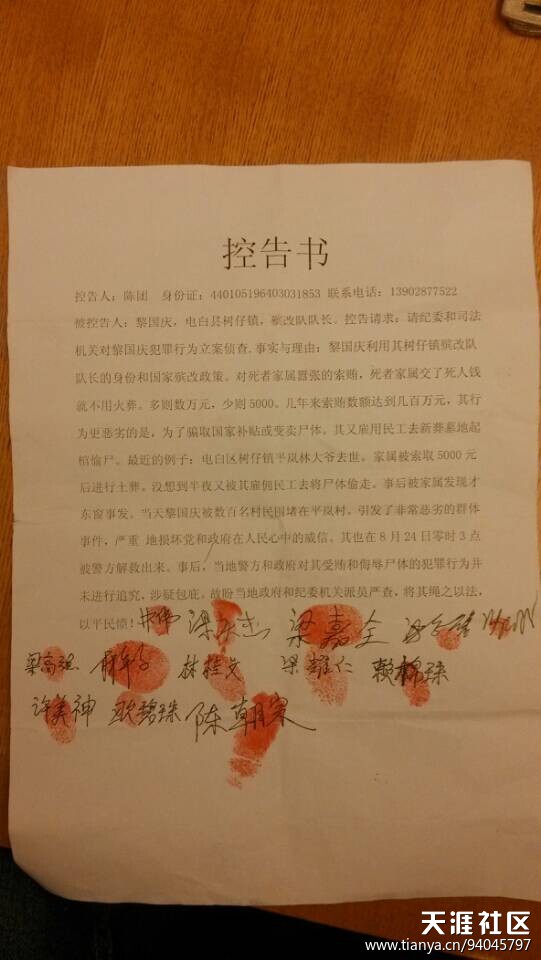 控告书
控告人：陈团 身份证：440105196403031853 联系电话：13902877522
被控告人：黎国庆，电白县树仔镇，殡改队队长. 控告请求：请纪委和司法
机关对黎国庆犯罪行为立案侦查.事实与理由：黎国庆利用其树仔镇殡改队
队长的身份和国家殡改政策。对死者家属嚣张的索贿，死者家属交了死人钱
就不用火葬。多则数万元，少则5000。几年来索贿数额达到几百万元，其行
为更恶劣的是，为了骗取国家补贴或变卖尸体。其又雇用民工去新葬墓地起
棺偷尸。最近的例子：电白区树仔镇平岚林大爷去世。家属被索取5000元
后进行土葬。没想到半夜又被其雇佣民工去将尸体偷走。事后被家属发现才
东窗事发。当天黎国庆被数百名村民围堵在平岚村。引发了非常恶劣的群体
事件，严重 地损坏党和政府在人民心中的威信。其也在8月24日零时3点
被警方解救出来。事后，当地警方和政府对其受贿和侮辱尸体的犯罪行为并
未进行追究，涉疑包庇。故盼当地政府和纪委机关派员严查，将其绳之以法，
以平民愤！
梁嘉全
林桂文 梁雄仁 赖棉珠
许美神 陈朝
天涯社区
www.tianya.cn/94045797